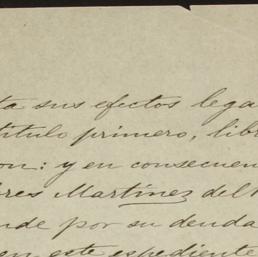 ta sus efectos lega
título primero, lib
on: y en consecuen
res Martínez del
nde por su deuda
en este espediente